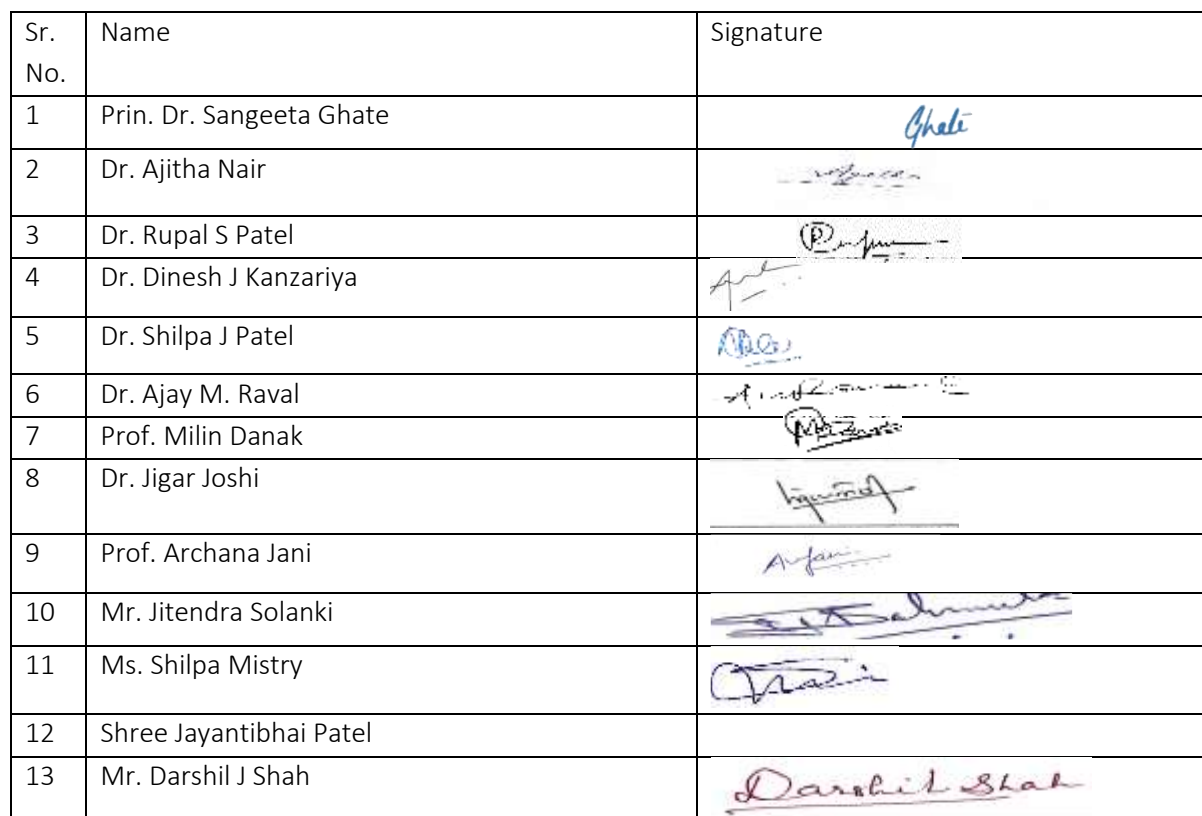 Sr. No. Name Signature
1 Prin. Dr. Sangeeta Ghate Ghate
2 Dr. Ajitha Nair
3 Dr. Rupal S Patel
4 Dr. Dinesh J Kanzariya
5 Dr. Shilpa J Patel
6 Dr. Ajay M. Raval
7 Prof. Milin Danak
8 Dr. Jigar Joshi
9 Prof. Archana Jani A.Jani
10 Mr. Jitendra Solanki
11 Ms. Shilpa Mistry
12 Shree Jayantibhai Patel
13 Mr. Darshil J Shah Darshil Shah